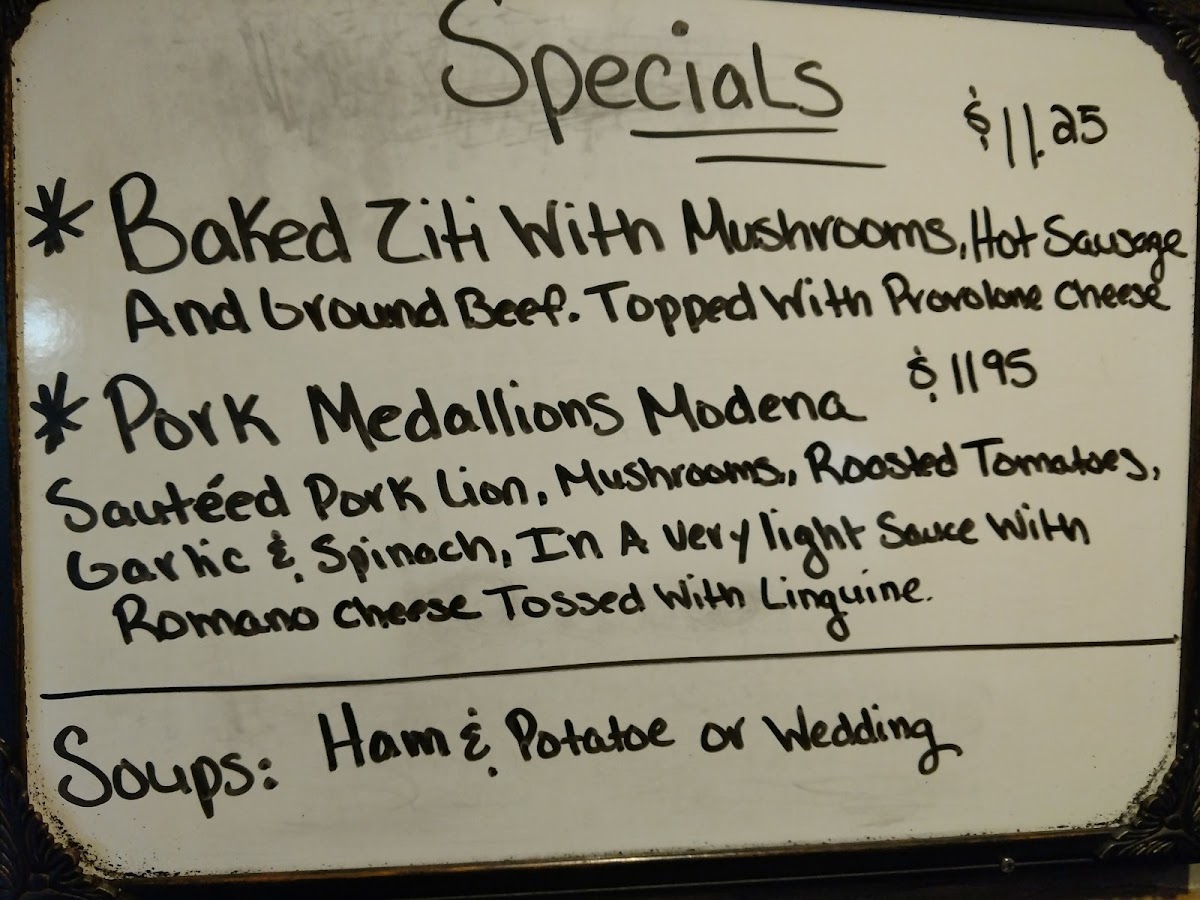 Specials
$11.25
* Baked Ziti With Mushrooms, Hot Sausage
And Ground Beef. Topped With Provolone Cheese
* Pork Medallions Modena $1195
Sautéed Pork Lion, Mushrooms, Roasted Tomatoes,
Garlic & Spinach, In A very light Sauce With
Romano Cheese Tossed With Linguine.
Soups: Ham & Potatoe or Wedding